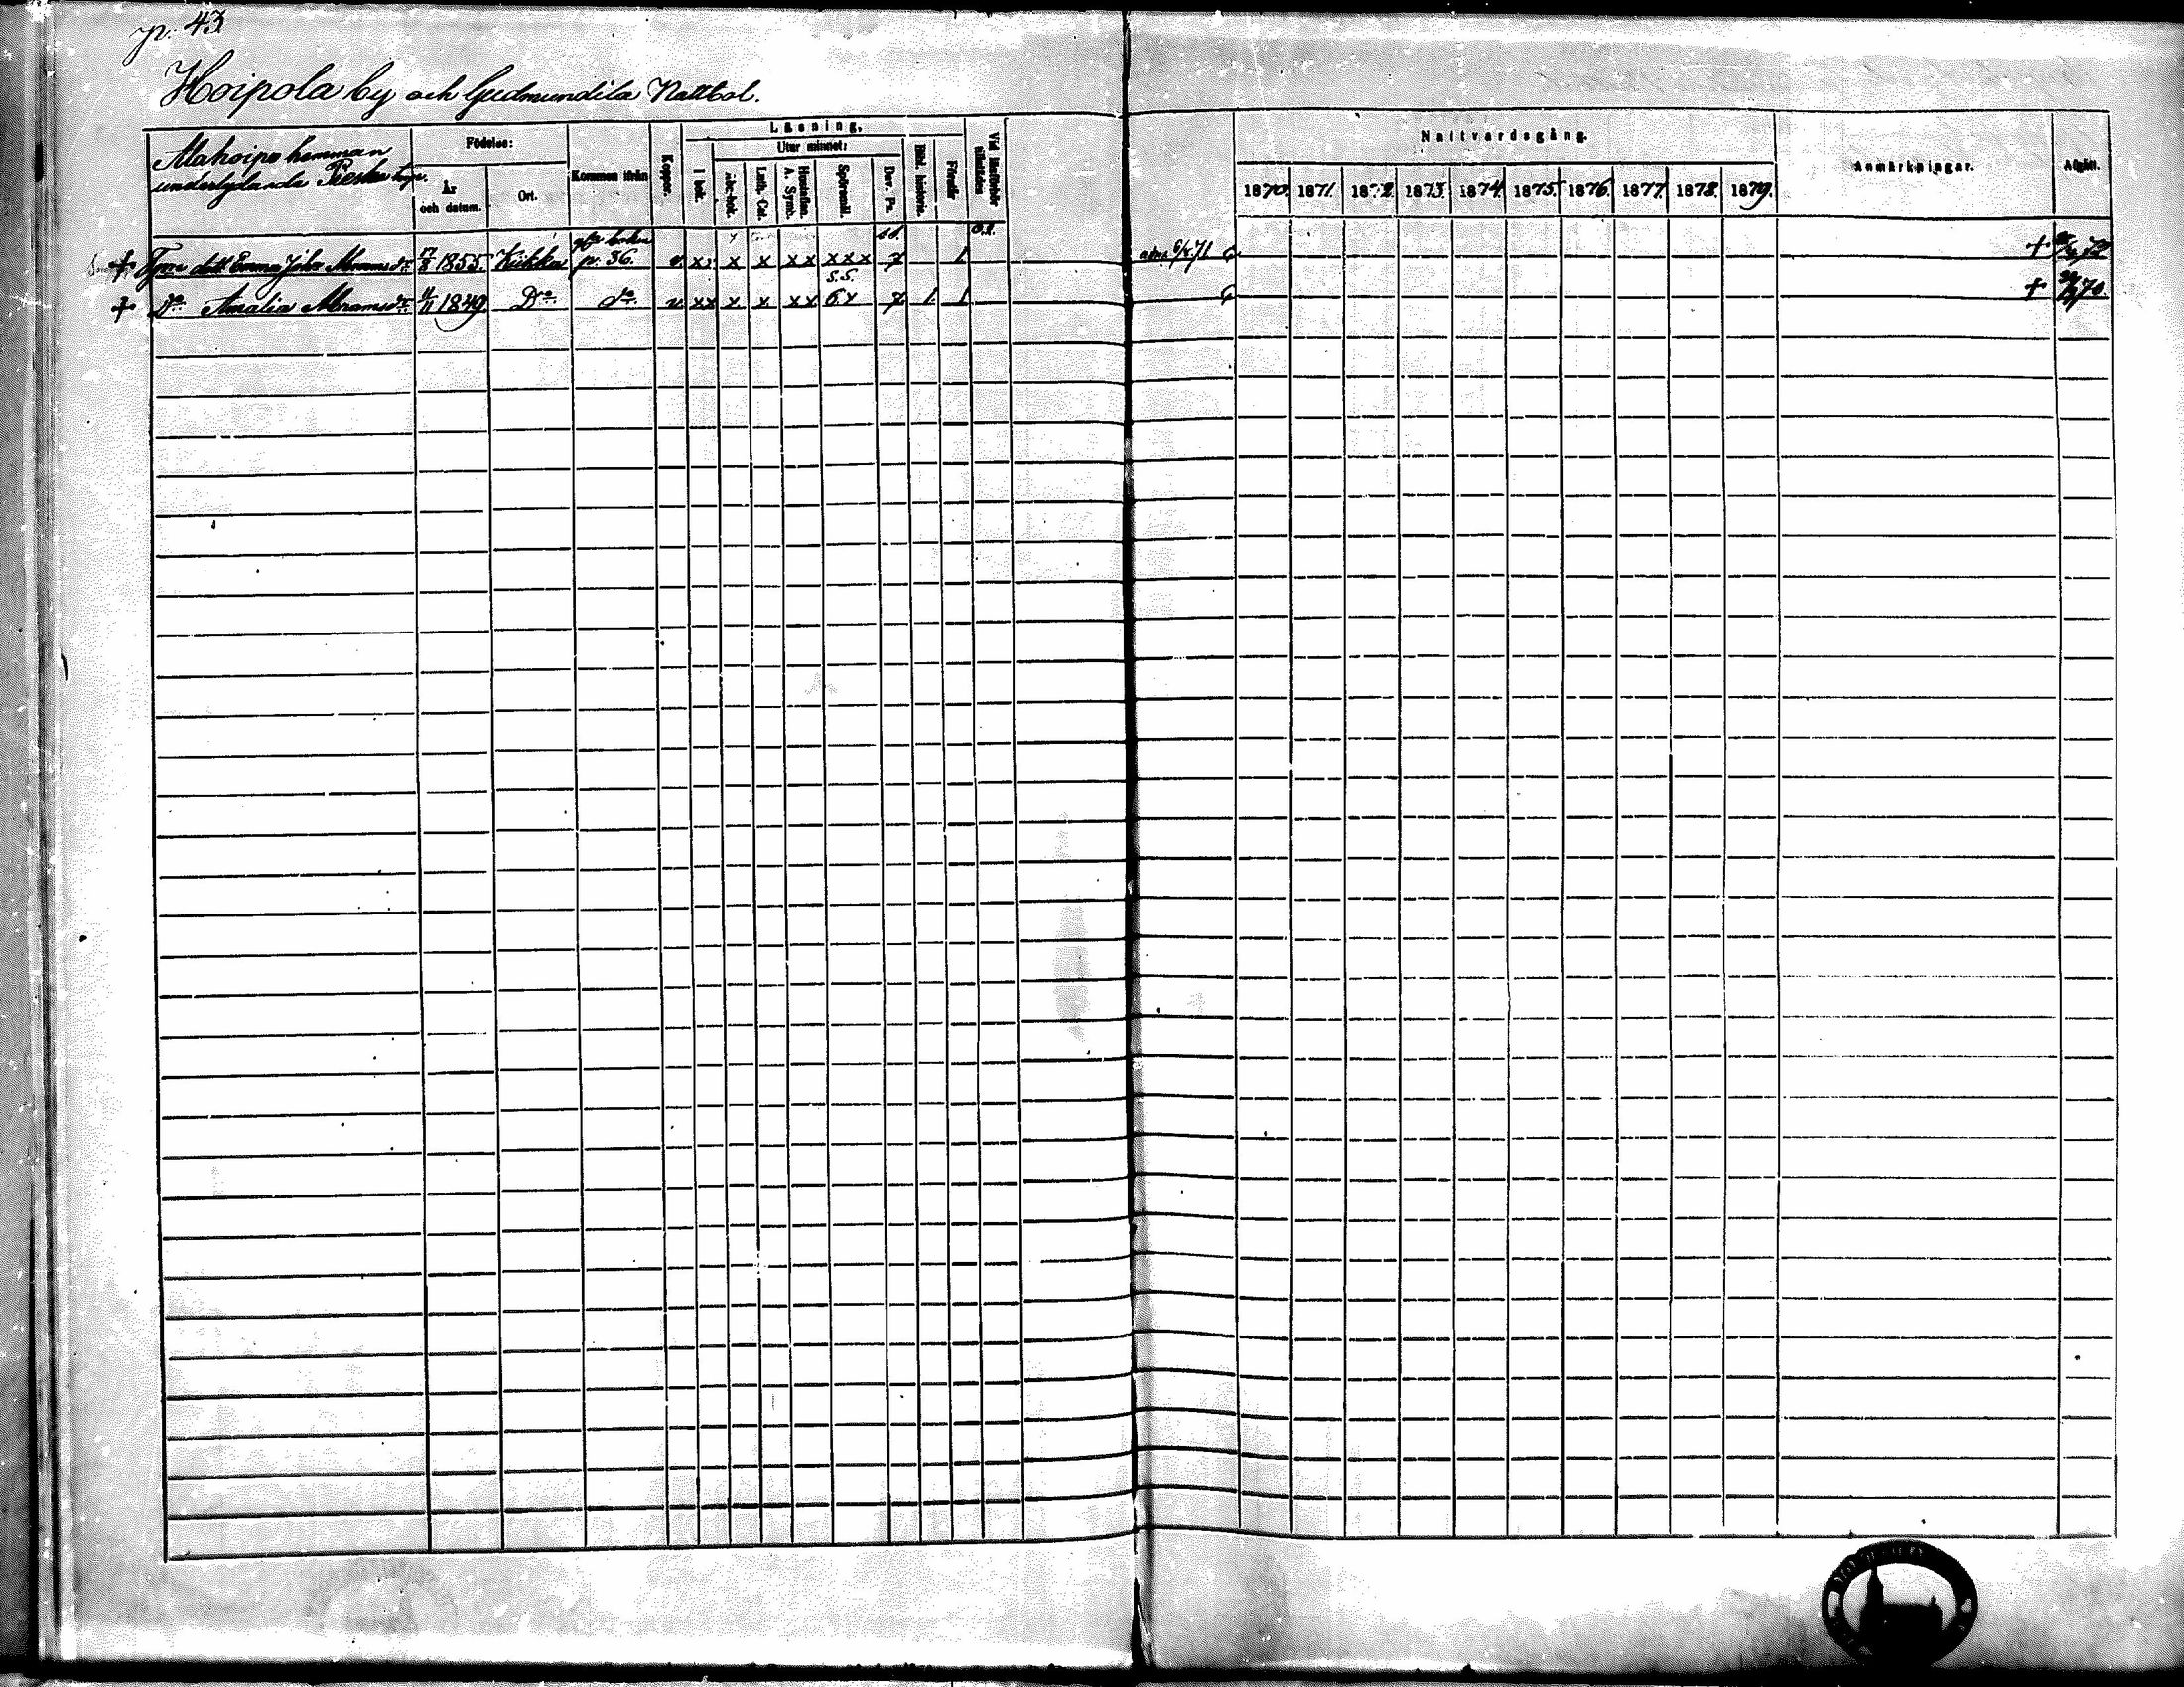 p. 43
Hoipola by och Gudmundila Nattbol.
Alahoipo hemman
underlydande torp.
Födelse:
År
och datum.
Ort.
Kommen ifrån
Koppor.
Läsning.
I bok.
Utur minnet:
Abc-bok.
Luth. Cat.
Hustaflan.
A. Symb.
Spörsmål.
Dav. Ps.
Bibl. historia.
Förstår
Vid läsförhör
tillstädes
Nattvardsgång.
1870 1871. 1872. 1873. 1874. 1875. 1876. 1877. 1878. 1879.
Anmärkningar.
Afgått.
† dott Emma Joha Abramsdr 1855. Kiikka p. 36. v x x x x x x x x 1 adm 6/71 †
† Do Amalia Abramsdr 1849. Do do v x x x x x x 6 x 1 1 † 70.
s.s.